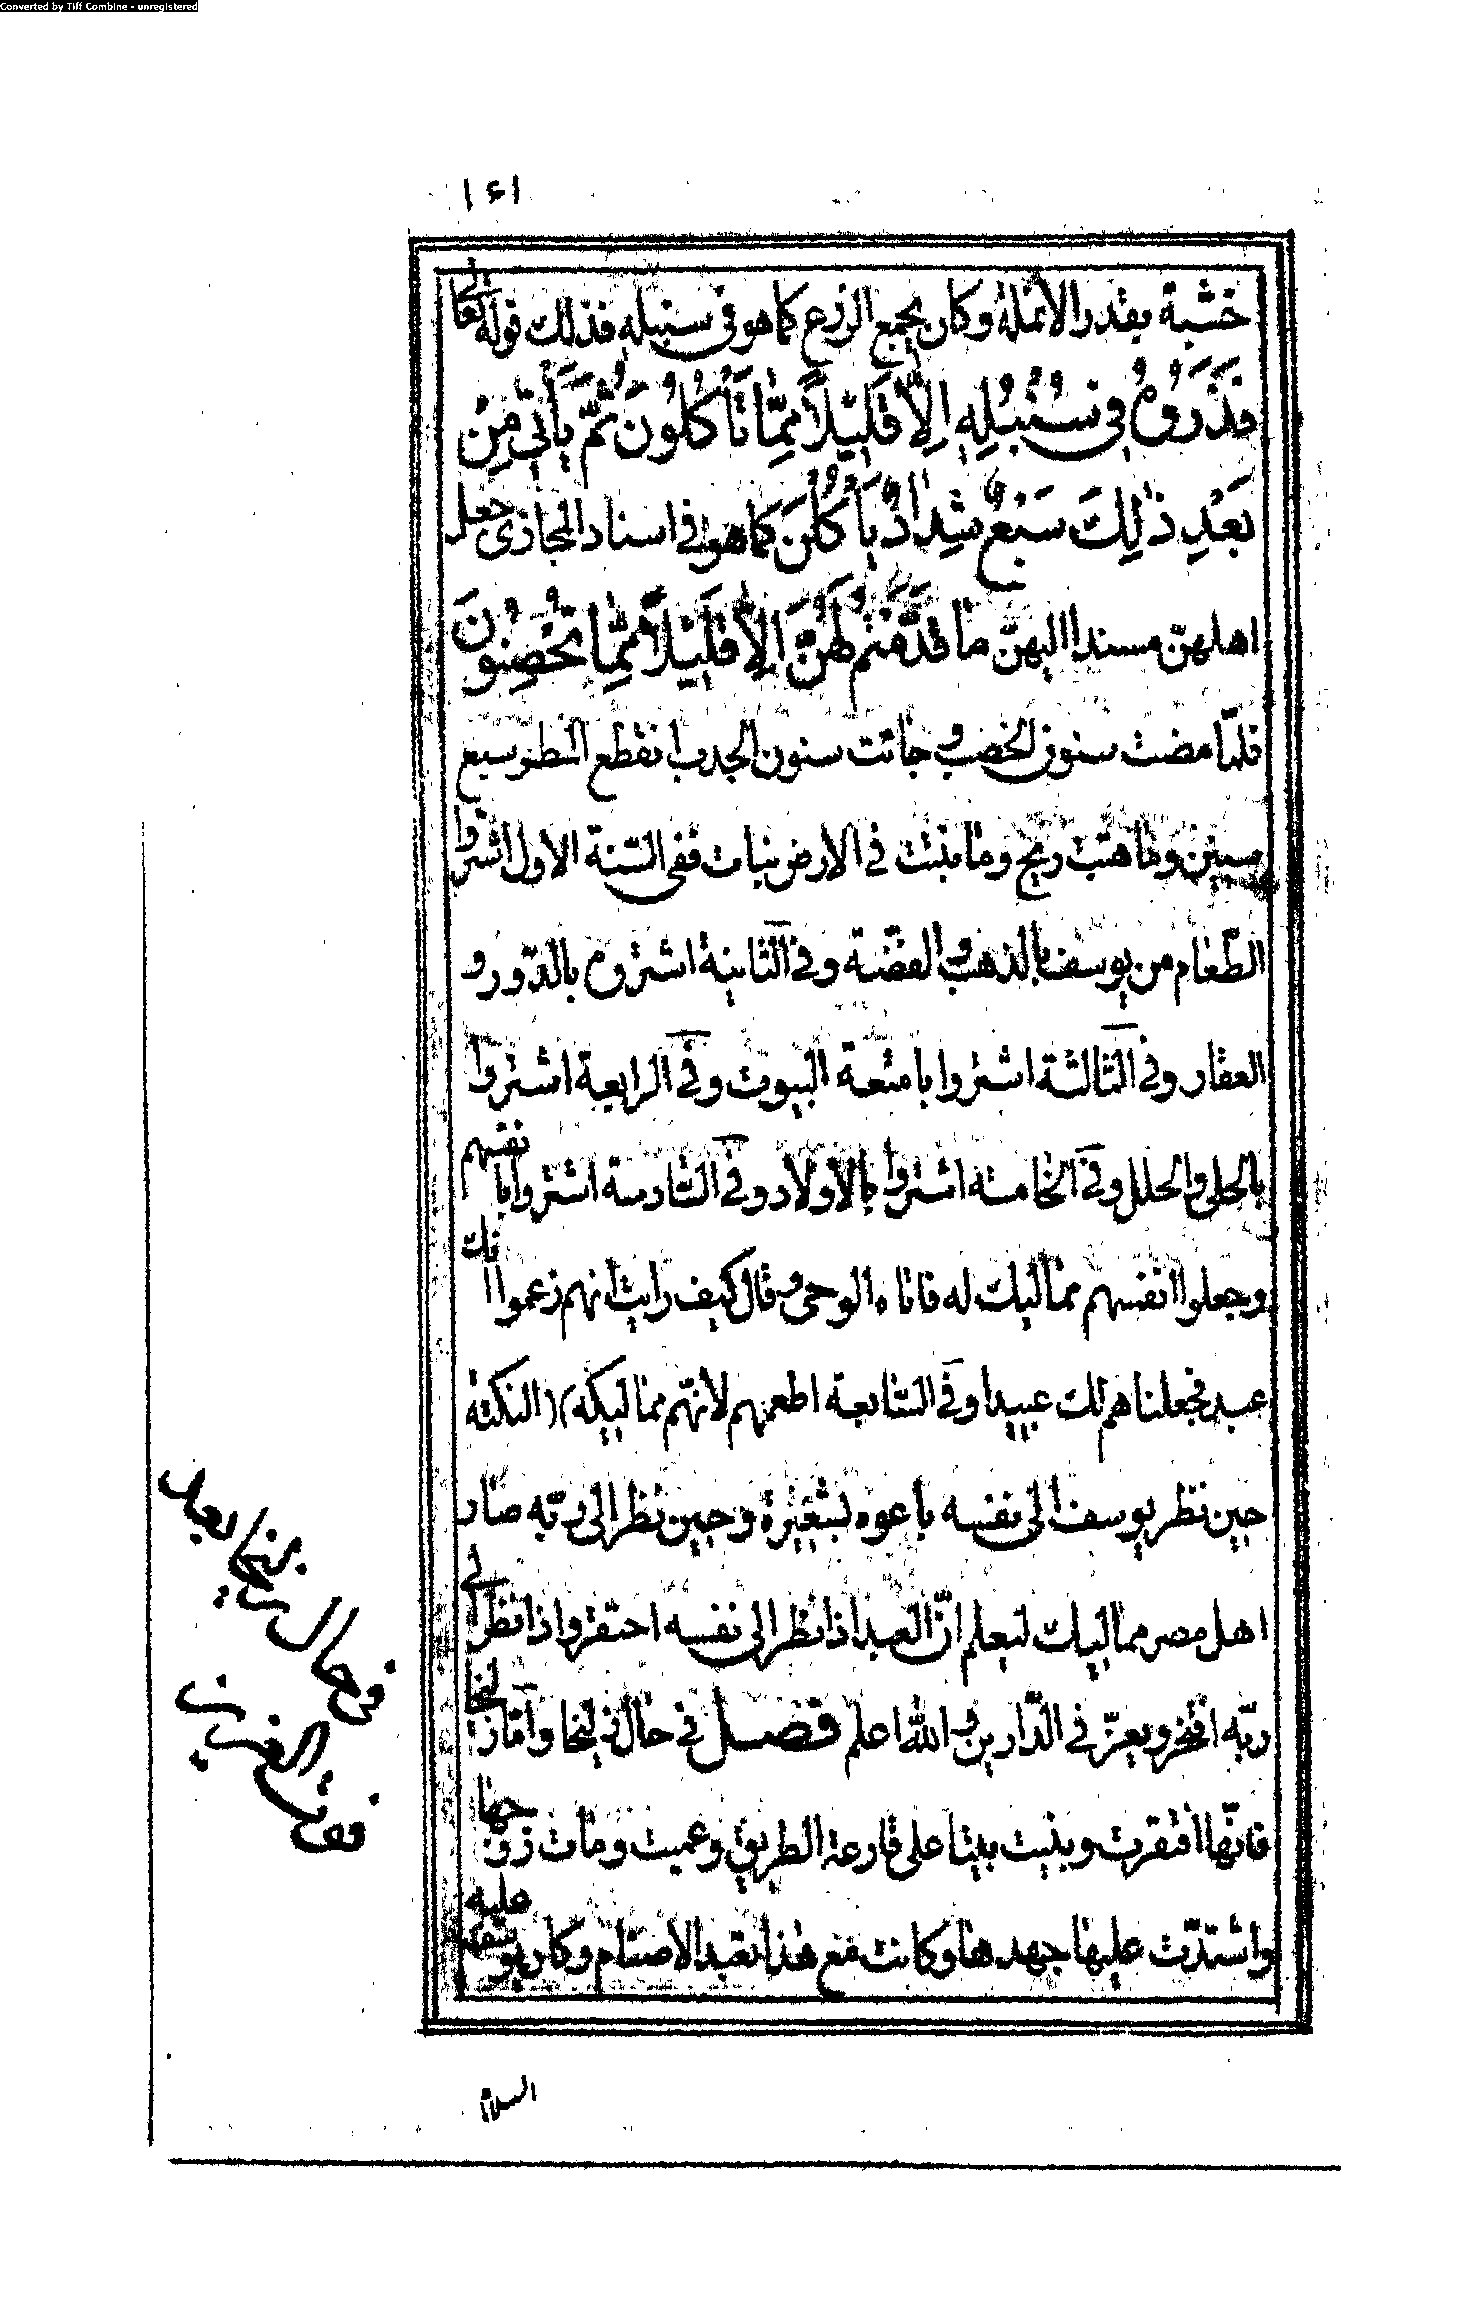 Converted by Tiff Combine - unregistered
١٤١
خشبة بقدر الأنملة وكان يجمع الزرع كما هو في سنبله فذلك قوله تعالى
فَذَرُوهُ فِي سُنْبُلِهِ إِلَّا قَلِيلًا مِمَّا تَأْكُلُونَ ثُمَّ يَأْتِي مِنْ
بَعْدِ ذٰلِكَ سَبْعٌ شِدَادٌ يَأْكُلْنَ كما هو في اسناد المجازي جعل
اهلهنّ مسندا اليهنّ مَا قَدَّمْتُمْ لَهُنَّ إِلَّا قَلِيلًا مِمَّا تُحْصِنُونَ
فلمّا مضت سنون الخصب و جائت سنون الجدب انقطع المطر سبع
سنين وما هبت ريح وما نبتت في الارض نبات ففي السّنة الاول اشتروا
الطّعام من يوسف بالذهب و الفضّة وفي الثانية اشتروه بالدّور و
العقار وفي الثالثة اشتروا بامتعة البيوت وفي الرابعة اشتروا
بالحلي والحلل وفي الخامسة اشتروا بالأولاد وفي السّادسة اشتروا بانفسهم
وجعلوا انفسهم مماليك له فاتاه الوحي و قال كيف رايت انهم زعموا انك
عبد فجعلناهم لك عبيدا وفي السّابعة اطعمهم لأنهّم مماليكه (النكتة
حين نظر يوسف الى نفسه باعوه بشعيرة وحين نظر الى ربّه صار
اهل مصر مماليك ليعلم انّ العبد اذا نظر الى نفسه احتقر واذا نظر الى
ربّه افتخر ويعزّ في الدّارين و الله اعلم فصل في حال زليخا وأمّا زليخا
فانّها افتقرت وبنيت بيتا على قارعة الطريق وعميت ومات زوجها
واشتدّت عليها جهدها وكانت مع هذا تعبد الاصنام وكان يوسف عليه
السلام
في حال زليخا بعد